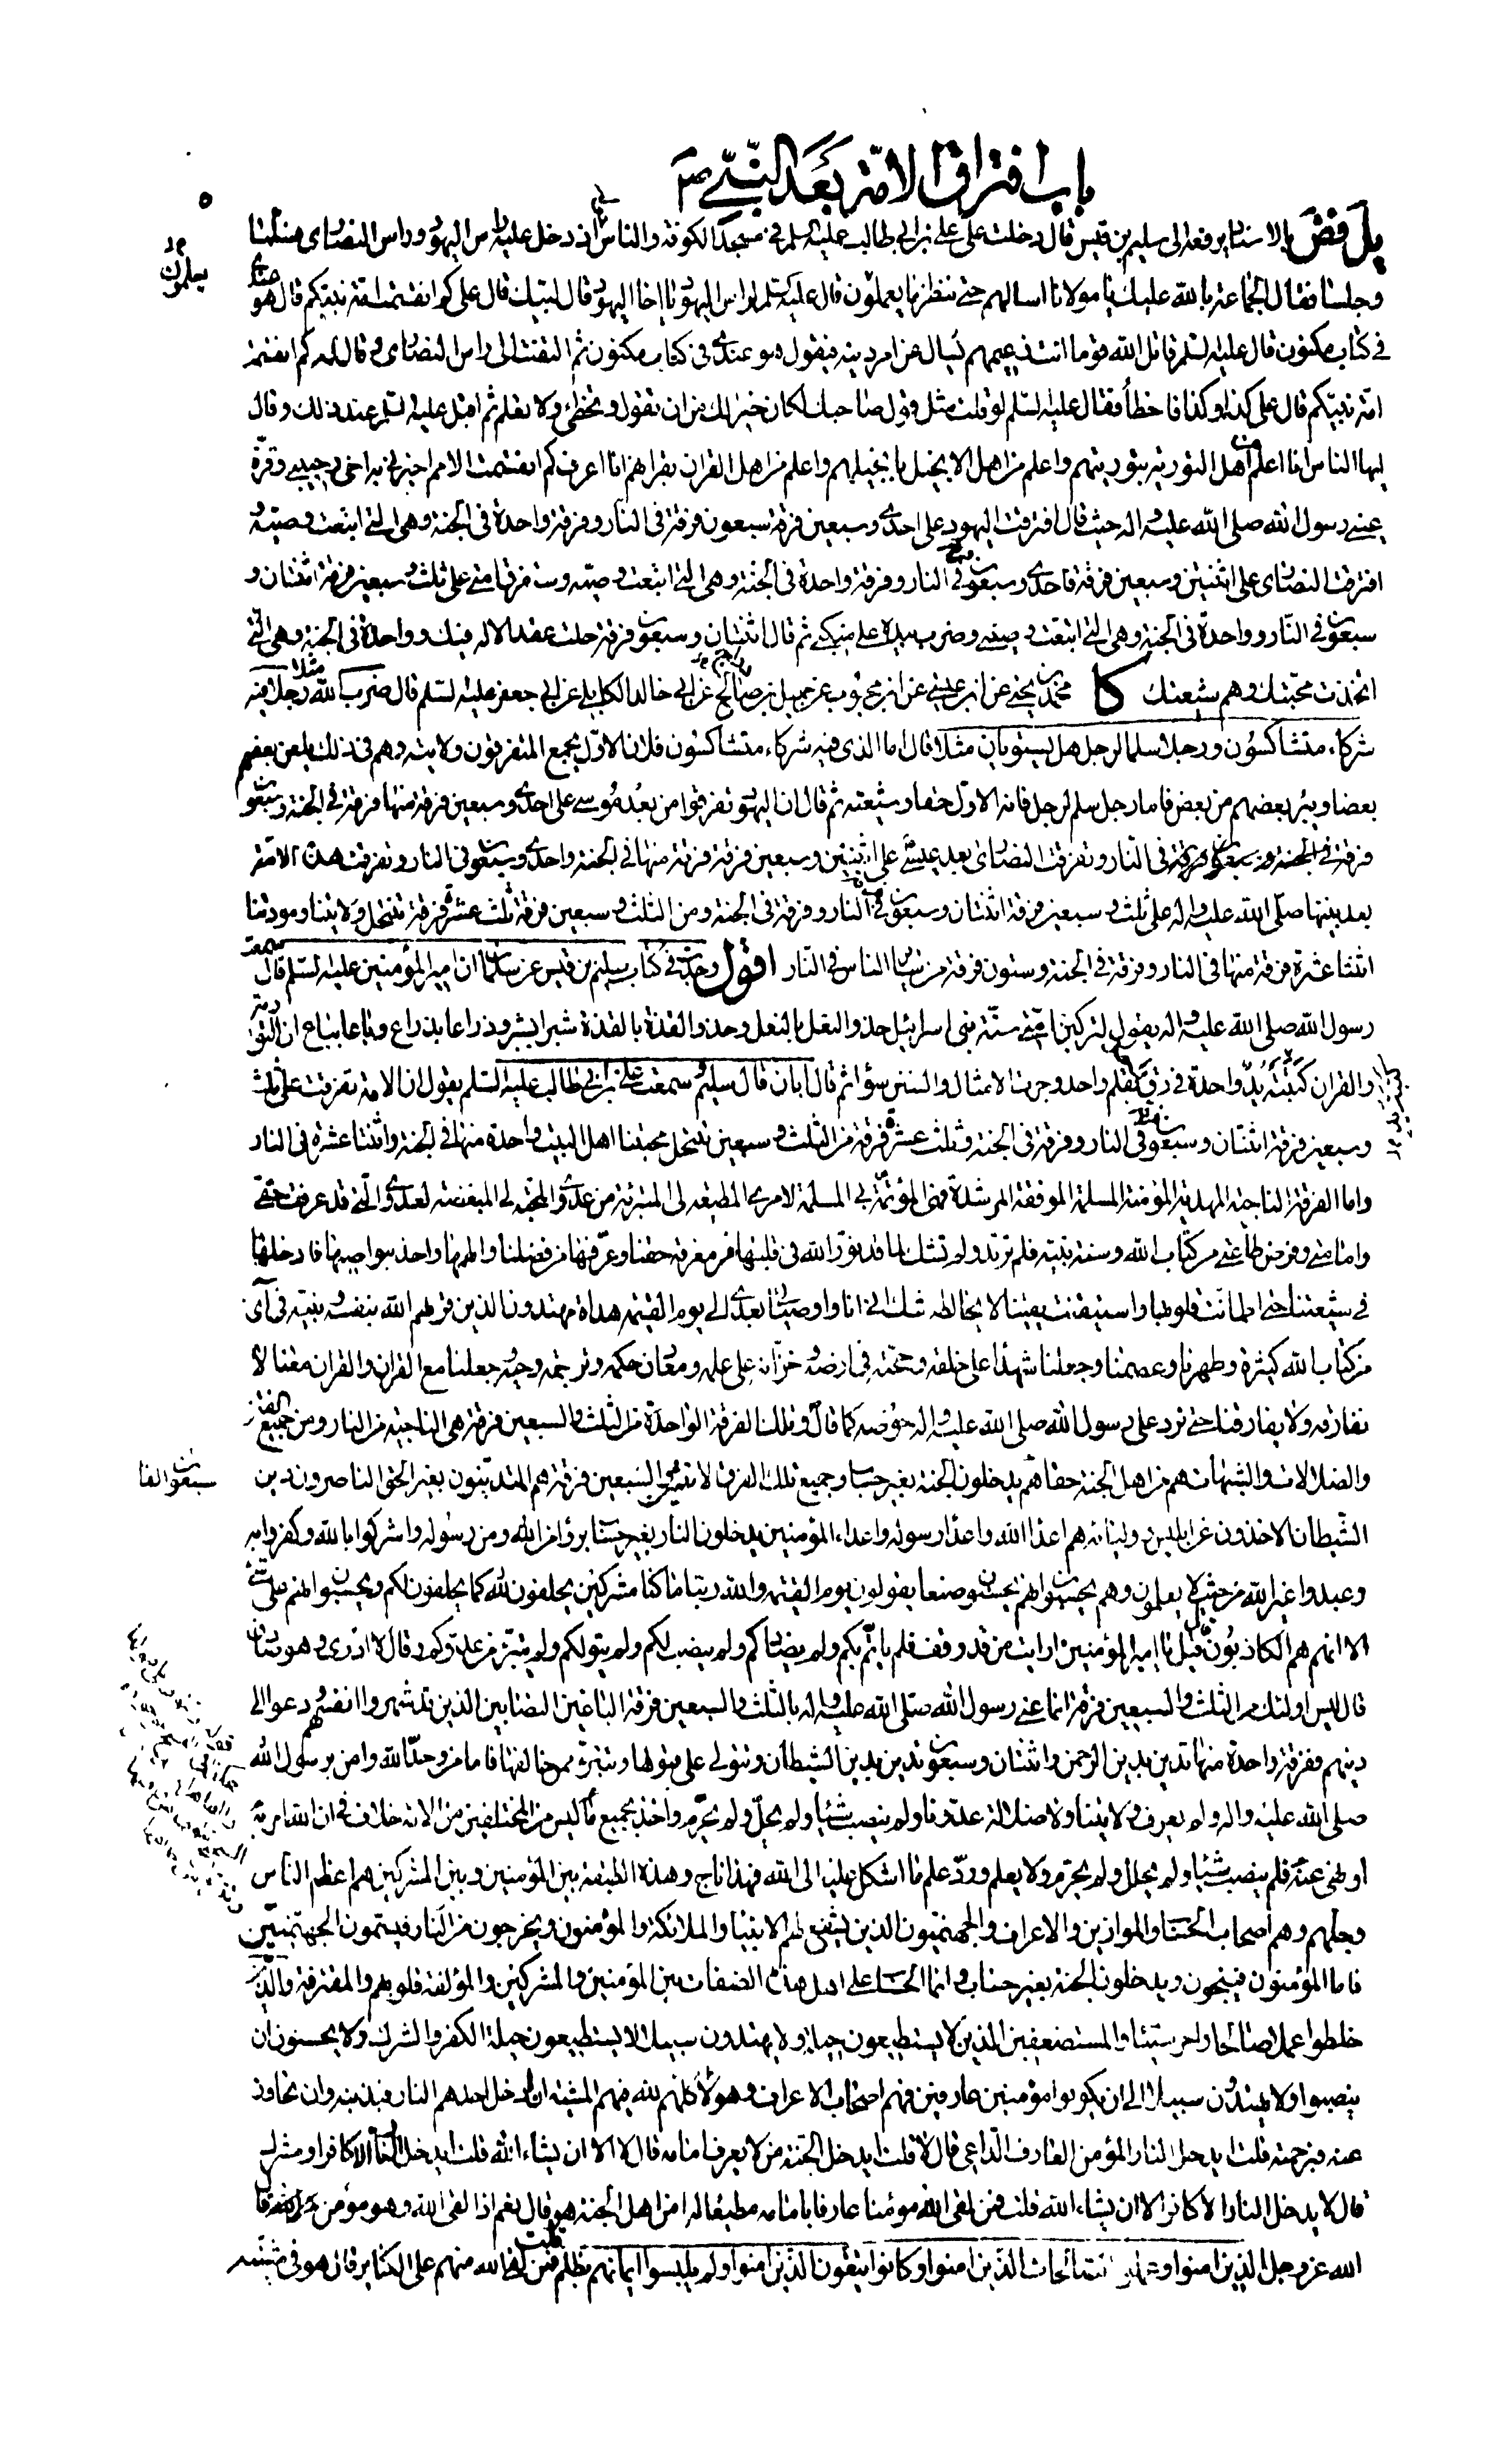 باب افتراق الامّة بعد النّبیّ ص
یل فض بالاسناد یرفعه الی سلیم بن قیس قال دخلت علی علی بن ابی طالب علیه السلم فی مسجد الکوفة والناس حوله اذ دخل علیه راس الیهود وراس النصاری فسلّما
وجلسا فقال الجماعة بالله علیك یا مولانا اسالهم حتی ننظر ما یعملون قال علیه السلم لراس الیهود یا اخا الیهود قال لبّیك قال علی کم انقسمت امّة نبیّکم قال هو عندی
فی کتاب مکنون قال علیه السلم قاتل الله قوما انت زعیمهم یسال عن امر دینه فیقول هو عندی فی کتاب مکنون ثم التفت الی راس النصاری و قال له کم انقسمت
امّة نبیّکم قال علی کذا وکذا فاخطأ فقال علیه السلم لو قلت مثل قول صاحبك لکان خیرا لك من ان تقول وتخطئ ولا تعلم ثم اقبل علیه السلم عند ذلك وقال
ایها الناس انا اعلم من اهل التوریة بتوریتهم واعلم من اهل الانجیل بانجیلهم واعلم من اهل القران بقرانهم انا اعرف کم انقسمت الامم اخبرنی به اخی وحبیبی وقرّة
عینی رسول الله صلی الله علیه واله حیث قال افترقت الیهود علی احدی وسبعین فرقة سبعون فرقة فی النار وفرقة واحدة فی الجنة وهی التی اتبعت وصیّه و
افترقت النصاری علی اثنتین وسبعین فرقة فاحدی وسبعون فرقة فی النار وفرقة واحدة فی الجنة وهی التی اتبعت وصیّه وستفرق امتی علی ثلث وسبعین فرقة اثنتان و
سبعون فی النار وواحدة فی الجنة وهی التی اتبعت وصیی وضرب بیده علی منکبی ثم قال اثنتان وسبعون فرقة حلت عقد الاله فیك وواحدة فی الجنة وهی التی
اتخذت محبّتك وهم شیعتك کا محمد بن یحیی عن ابن عیسی عن ابن محبوب عن جمیل بن صالح عن ابی خالد الکابلی عن ابی جعفر علیه السلم قال ضرب الله مثلا رجلا فیه
شرکاء متشاکسون ورجلا سلما لرجل هل یستویان مثلا قال اما الذی فیه شرکاء متشاکسون فلان الاوّل یجمع المتفرقون ولایته وهم فی ذلك یلعن بعضهم
بعضا ویبرء بعضهم من بعض فاما رجل سلم لرجل فانه الاوّل حقا وشیعته ثم قال ان الیهود تفرقوا من بعد موسی علی احدی وسبعین فرقة منها فرقة فی الجنة وسبعون
فرقة فی النار وتفرقت النصاری بعد عیسی علی اثنتین وسبعین فرقة فرقة منها فی الجنة واحدی وسبعون فی النار وتفرقت هذه الامّة
بعد نبیّها صلی الله علیه واله علی ثلث وسبعین فرقة اثنتان وسبعون فرقة فی النار وفرقة فی الجنة ومن الثلث وسبعین فرقة ثلث عشرة فرقة تنتحل ولایتنا ومودّتنا
اثنتا عشرة فرقة منها فی النار وفرقة فی الجنة وستون فرقة من سایر الناس فی النار اقول وجدت فی کتاب سلیم بن قیس عن سلمان ان امیر المؤمنین علیه السلم قال سمعت
رسول الله صلی الله علیه واله یقول لترکبن امّتی سنّة بنی اسرائیل حذو النعل بالنعل وحذو القذة بالقذة شبرا بشبر وذراعا بذراع وباعا بباع ان التوریة
والقران کتبته ید واحدة فی رق بقلم واحد وجرت الامثال والسنن سواء ثم قال ابان قال سلیم سمعت علی بن ابی طالب علیه السلم یقول ان الامة تفرقت علی ثلث
وسبعین فرقة اثنتان وسبعون فرقة فی النار وفرقة فی الجنة وثلث عشرة فرقة من الثلث وسبعین تنتحل محبتنا اهل البیت واحدة منها فی الجنة واثنتا عشرة فی النار
واما الفرقة الناجیة المهدیة المؤمنة المسلمة الموفقة المرشدة فهی المؤتمنة بی المسلمة لامری المطیعة لی المتبرئة من عدوّی المحبّة لی المبغضة لعدوّی التی قد عرفت حقی
وامامتی وفرض طاعتی من کتاب الله وسنة نبیّه فلم ترتدّ ولم تشك لما قد نوّر الله فی قلبها من معرفة حقنا وعرّفها من فضلنا والهمها واخذ بنواصیها فادخلها
فی شیعتنا حتی اطمانّت قلوبها واستیقنت یقینا لا یخالطه شك انی انا واوصیائی بعدی الی یوم القیمة هداة مهتدون الذین قرنهم الله بنفسه ونبیّه فی آی
من کتاب الله کثیرة وطهرنا وعصمنا وجعلنا شهداء علی خلقه وحجّته فی ارضه وخزّانه علی علمه ومعادن حکمه وتراجمة وحیه وجعلنا مع القران والقران معنا لا
نفارقه ولا یفارقنا حتی نرد علی رسول الله صلی الله علیه واله حوضه کما قال وتلك الفرقة الواحدة من الثلث والسبعین فرقة هی الناجیة من النار ومن جمیع الفتن
والضلالات والشبهات هم من اهل الجنة حقا هم یدخلون الجنة بغیر حساب وجمیع تلك الفرق الاثنتین والسبعین فرقة هم المتدیّنون بغیر الحق الناصرون دین
الشیطان الاخذون عن ابلیس واولیائه هم اعداء الله واعداء رسوله واعداء المؤمنین یدخلون النار بغیر حساب برؤا من الله ومن رسوله واشرکوا بالله وکفروا به
وعبدوا غیر الله من حیث لا یعلمون وهم یحسبون انهم یحسنون صنعا یقولون یوم القیمة والله ربنا ما کنا مشرکین یحلفون لله کما یحلفون لکم ویحسبون انهم علی شیء
الا انهم هم الکاذبون قیل یا امیر المؤمنین ارایت من قد وقف فلم یاتم بکم ولم یضادکم ولم ینصب لکم ولم یتولکم ولم یتبرّء من عدوّکم وقال لا ادری وهو صادق
قال لیس اولئك من الثلث والسبعین فرقة انما عنی رسول الله صلی الله علیه واله بالثلث والسبعین فرقة الباغین النصابین الذین قد شهروا انفسهم ودعوا الی
دینهم ففرقة واحدة منها تدین بدین الرحمن واثنتان وسبعون تدین بدین الشیطان وتتولی علی قبولها وتتبرّء ممن خالفها فاما من وحّد الله وامن برسول الله
صلی الله علیه واله ولم یعرف ولایتنا ولا ضلالة عدوّنا ولم ینصب شیئا ولم یحلّ ولم یحرّم واخذ بجمیع ما لیس من المختلفین من الامة خلاف فی ان الله امر به
او نهی عنه فلم ینصب شیئا ولم یحلل ولم یحرّم ولا یعلم وردّ علم ما اشکل علیه الی الله فهذا ناج وهذه الطبقة بین المؤمنین وبین المشرکین هم اعظم الناس
وجلّهم وهم اصحاب الحساب والموازین والاعراف والجهنمیّون الذین یشفع لهم الانبیاء والملائکة والمؤمنون ویخرجون من النار فیسمّون الجهنمیّین
فاما المؤمنون فینجون ویدخلون الجنة بغیر حساب وانما الحساب علی اهل هذه الصفات بین المؤمنین والمشرکین والمؤلفة قلوبهم والمقترفة والذین
خلطوا عملا صالحا واخر سیّئا والمستضعفین الذین لا یستطیعون حیلة ولا یهتدون سبیلا لا یستطیعون حیلة الکفر والشرك ولا یحسنون ان
ینصبوا ولا یهتدون سبیلا الی ان یکونوا مؤمنین عارفین فهم اصحاب الاعراف وهؤلاء کلهم لله فیهم المشیّة ان ادخل احدهم النار فبذنبه وان تجاوز
عنه فبرحمته قلت ایدخل النار المؤمن العارف الداعی قال لا قلت ایدخل الجنة من لا یعرف امامه قال لا الا ان یشاء الله قلت ایدخل النار الا کافر او مشرك
قال لا یدخل النار الا کافر الا ان یشاء الله قلت فمن لقی الله مؤمنا عارفا بامامه مطیعا له امن اهل الجنة هو قال نعم اذا لقی الله وهو مؤمن قال
الله عز وجل الذین امنوا وعملوا الصالحات الذین امنوا وکانوا یتقون الذین امنوا ولم یلبسوا ایمانهم بظلم قلت فمن لقی الله منهم علی الکبایر قال هو فی مشیّته
یعلمون
سبعون الفا